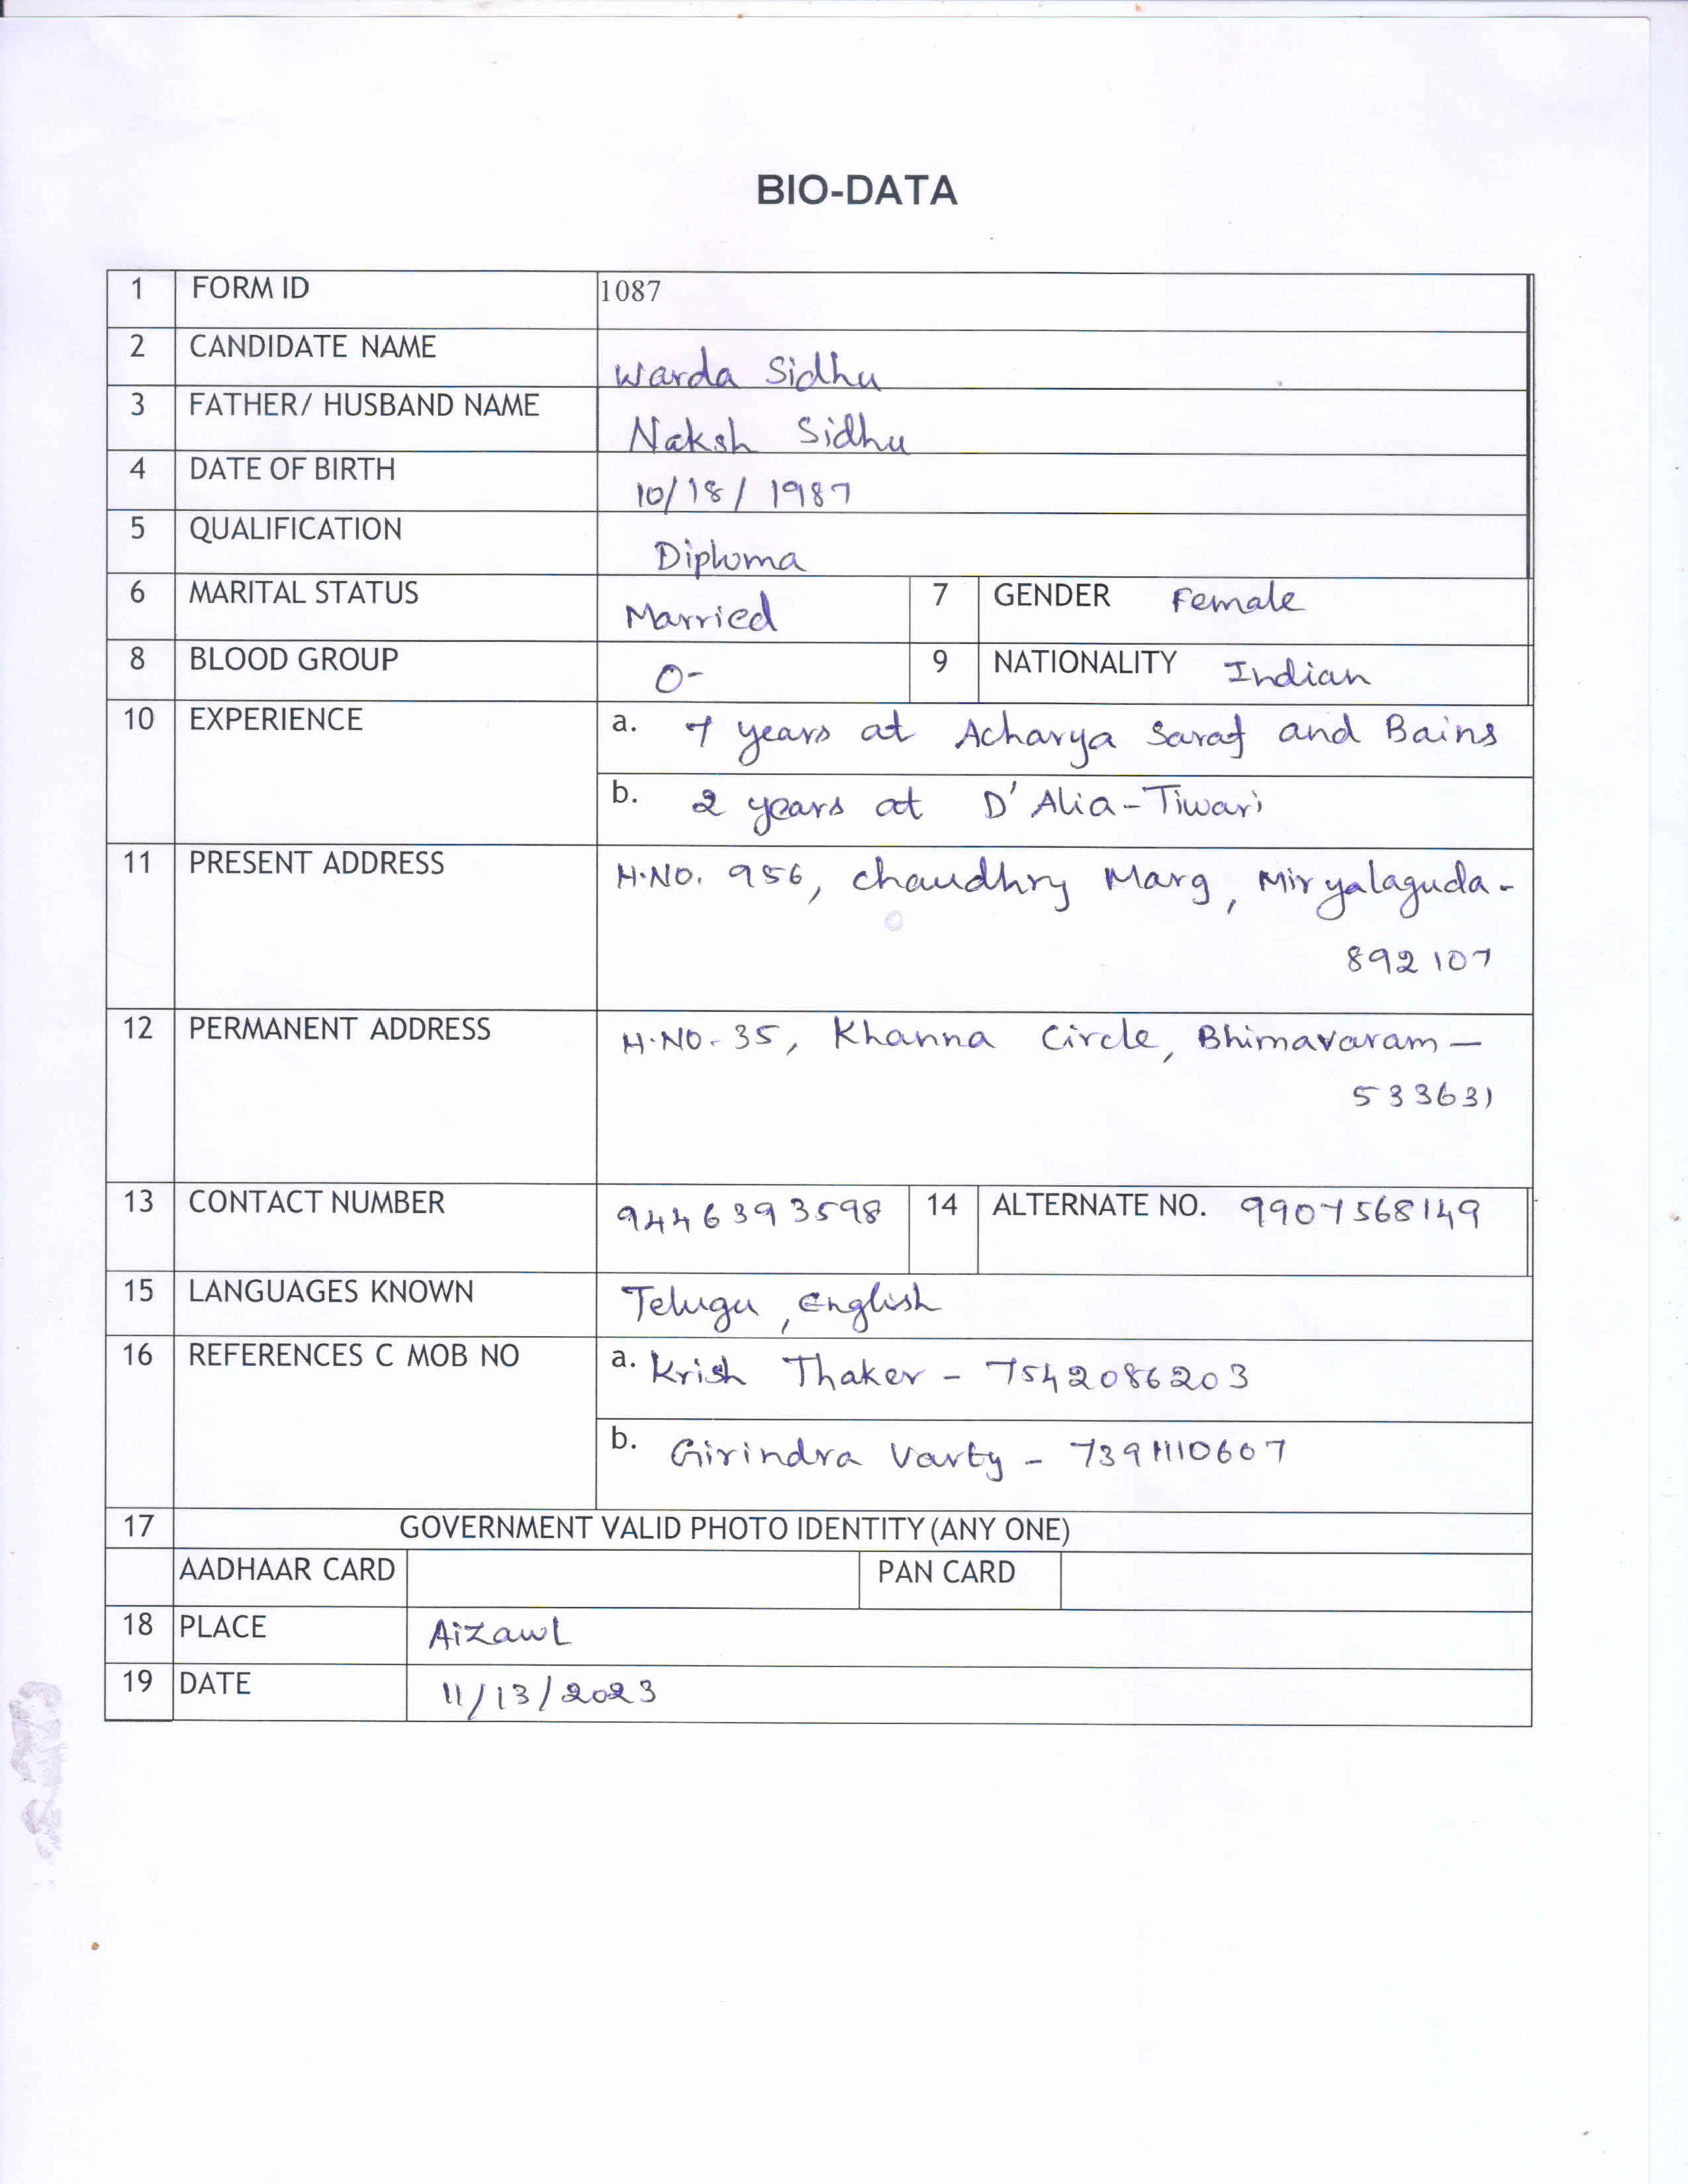 BIO-DATA
1 FORM ID 1087
2 CANDIDATE NAME Warda Sidhu
3 FATHER/ HUSBAND NAME Naksh Sidhu
4 DATE OF BIRTH 10/18/ 1987
5 QUALIFICATION Diploma
6 MARITAL STATUS Married 7 GENDER Female
8 BLOOD GROUP O- 9 NATIONALITY Indian
10 EXPERIENCE a. 7 years at Acharya Saraf and Bains
b. 2 years at D'Alia-Tiwari
11 PRESENT ADDRESS H.NO. 956, chaudhry Marg, Miryalaguda-
892107
12 PERMANENT ADDRESS H.NO. 35, Khanna Circle, Bhimavaram-
533631
13 CONTACT NUMBER 9446393598 14 ALTERNATE NO. 9907568149
15 LANGUAGES KNOWN Telugu, English
16 REFERENCES C MOB NO a. Krish Thaker - 7542086203
b. Girindra Varty -
17 GOVERNMENT VALID PHOTO IDENTITY (ANY ONE)
AADHAAR CARD PAN CARD
18 PLACE Aizawl
19 DATE 11/13/2023